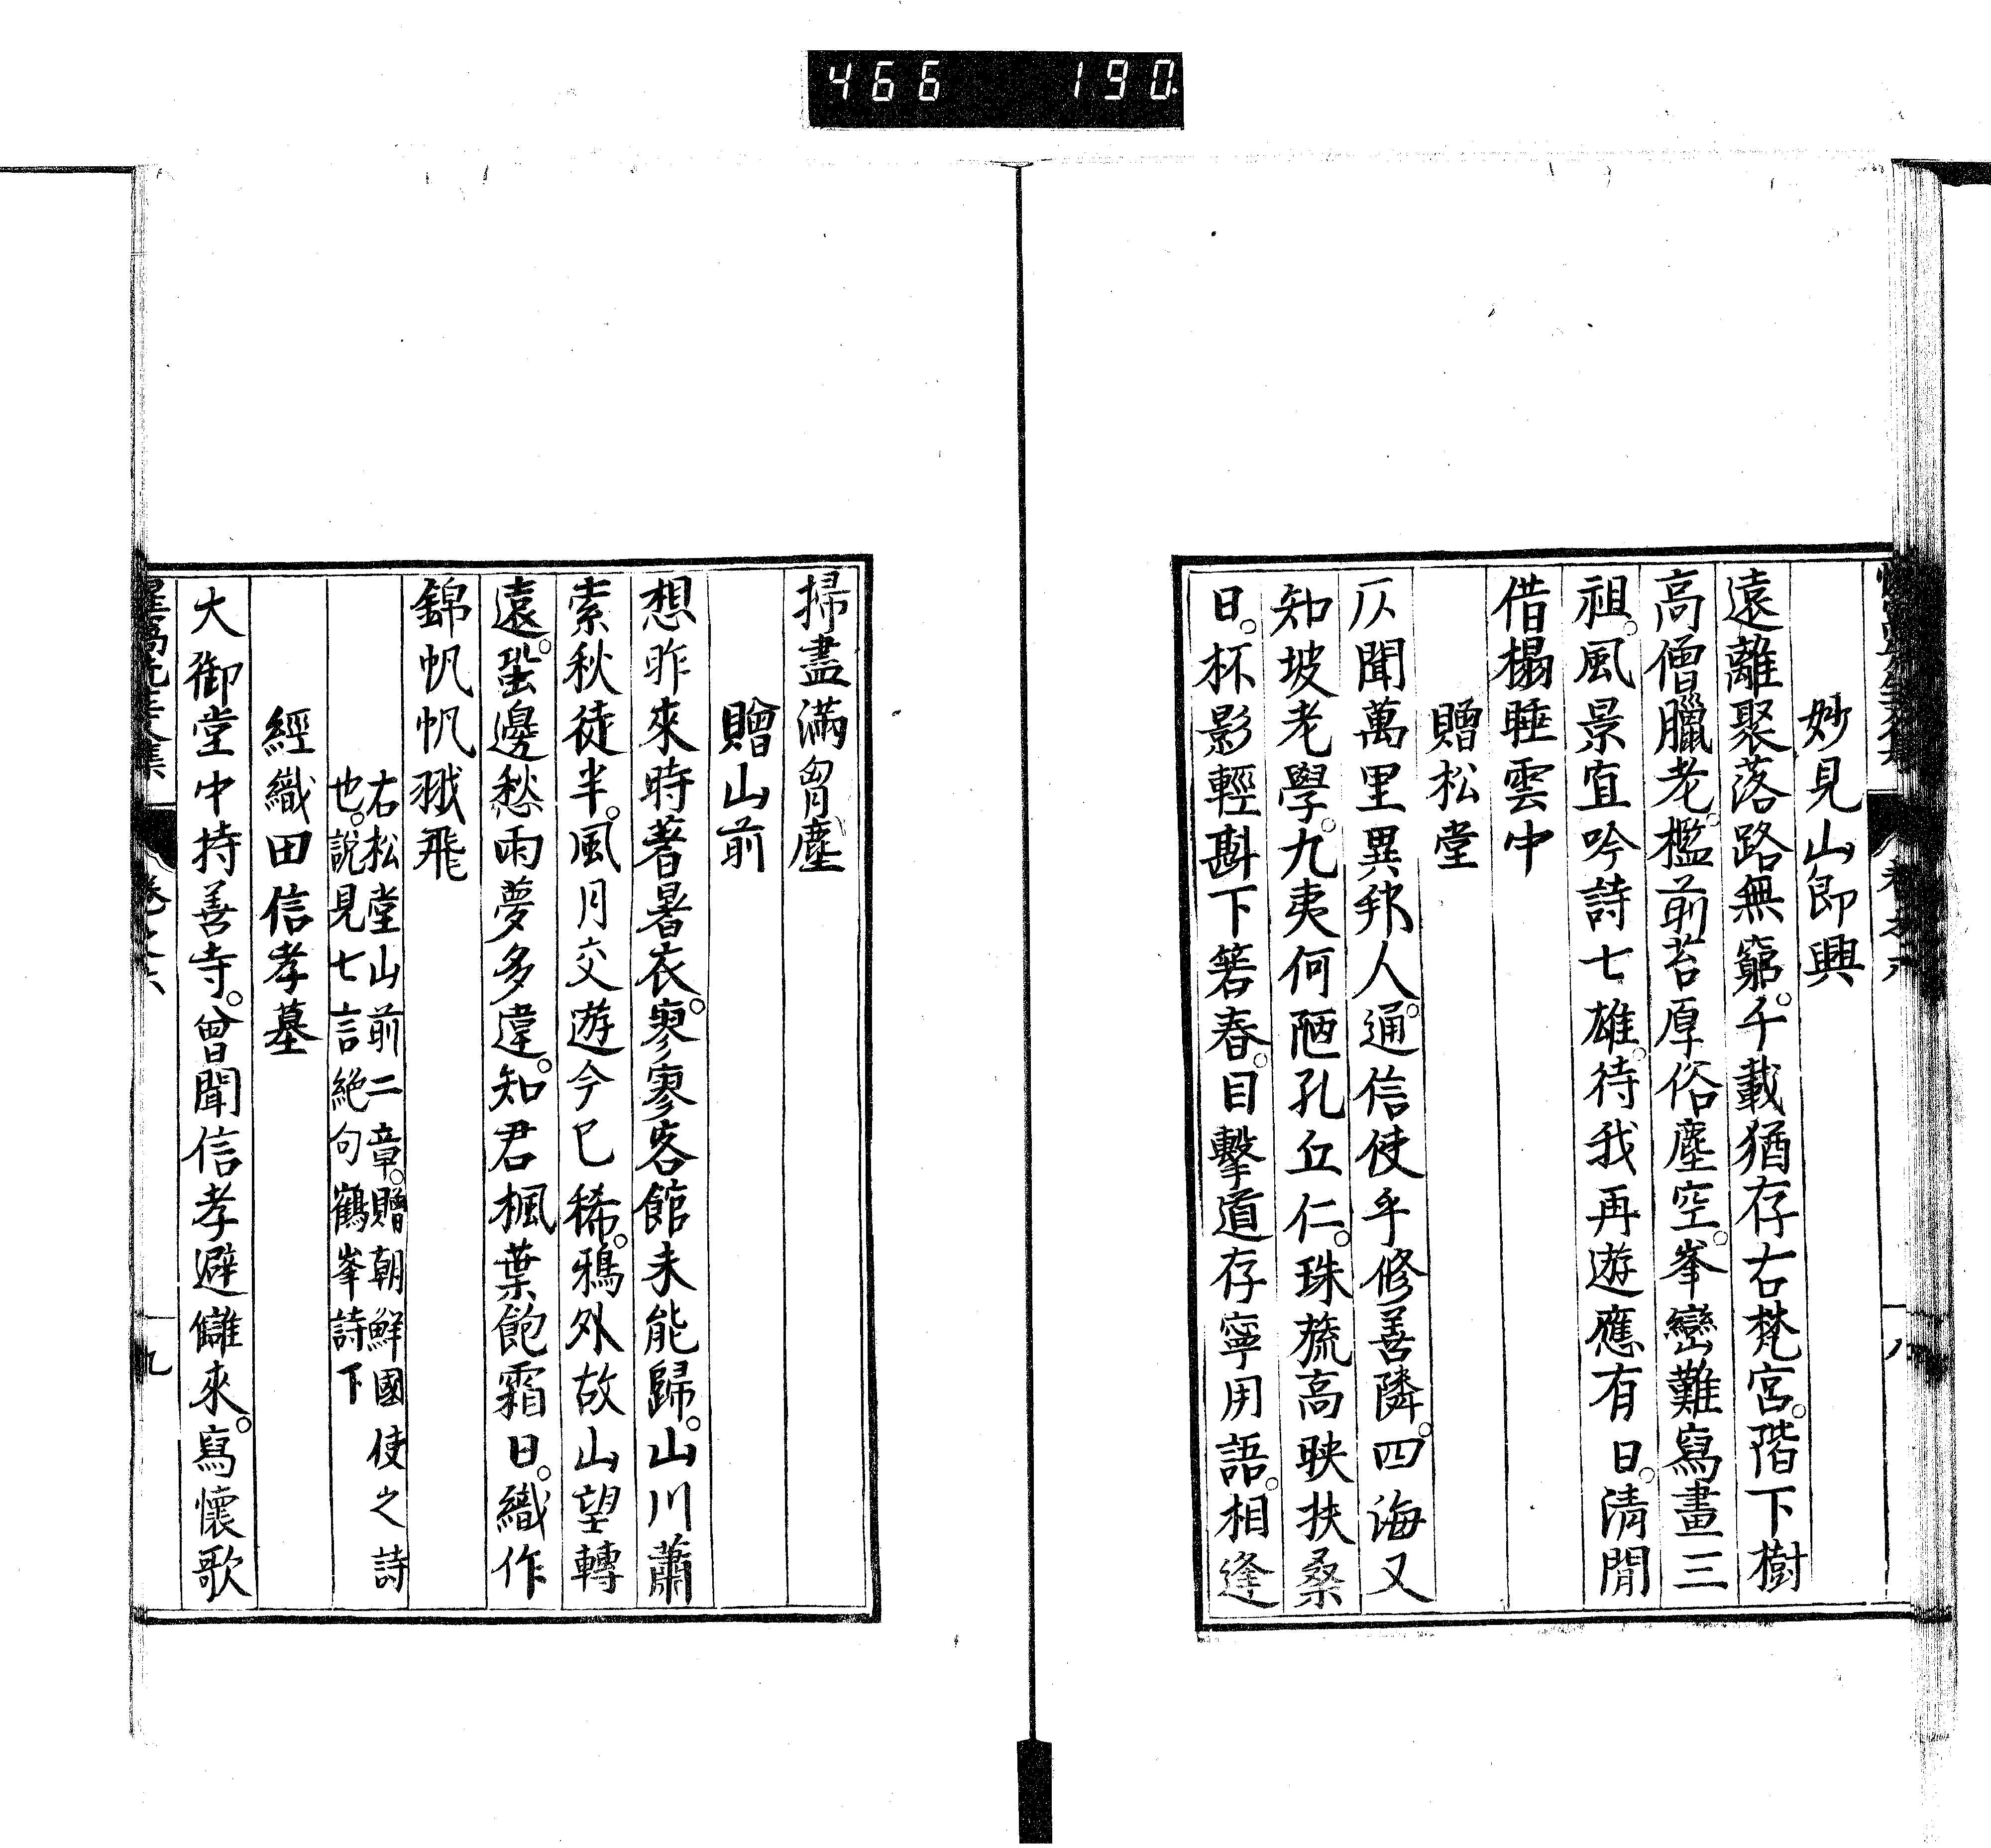 466 190
妙見山即興
遠離聚落路無窮。千載猶存古梵宮。階下樹
高僧臘老。檻前苔厚俗塵空。峯巒難寫畫三
祖。風景宜吟詩七雄。待我再遊應有日。清閒
借榻睡雲中
贈松堂
仄聞萬里異邦人。通信使乎修善隣。四海又
知坡老學。九夷何陋孔丘仁。珠旒高映扶桑
日。杯影輕斟下箬春。目擊道存寧用語。相逢
掃盡滿胷塵
贈山前
想昨來時著暑衣。寥寥客館未能歸。山川蕭
索秋徒半。風月交遊今已稀。鴉外故山望轉
遠。蛩邊愁雨夢多違。知君楓葉飽霜日。織作
錦帆帆戕飛
右松堂山前二章。贈朝鮮國使之詩
也。說見七言絕句鶴峯詩下
經織田信孝墓
大御堂中持善寺。曾聞信孝避讎來。寫懷歌
惺窩先生文集
卷之六
九